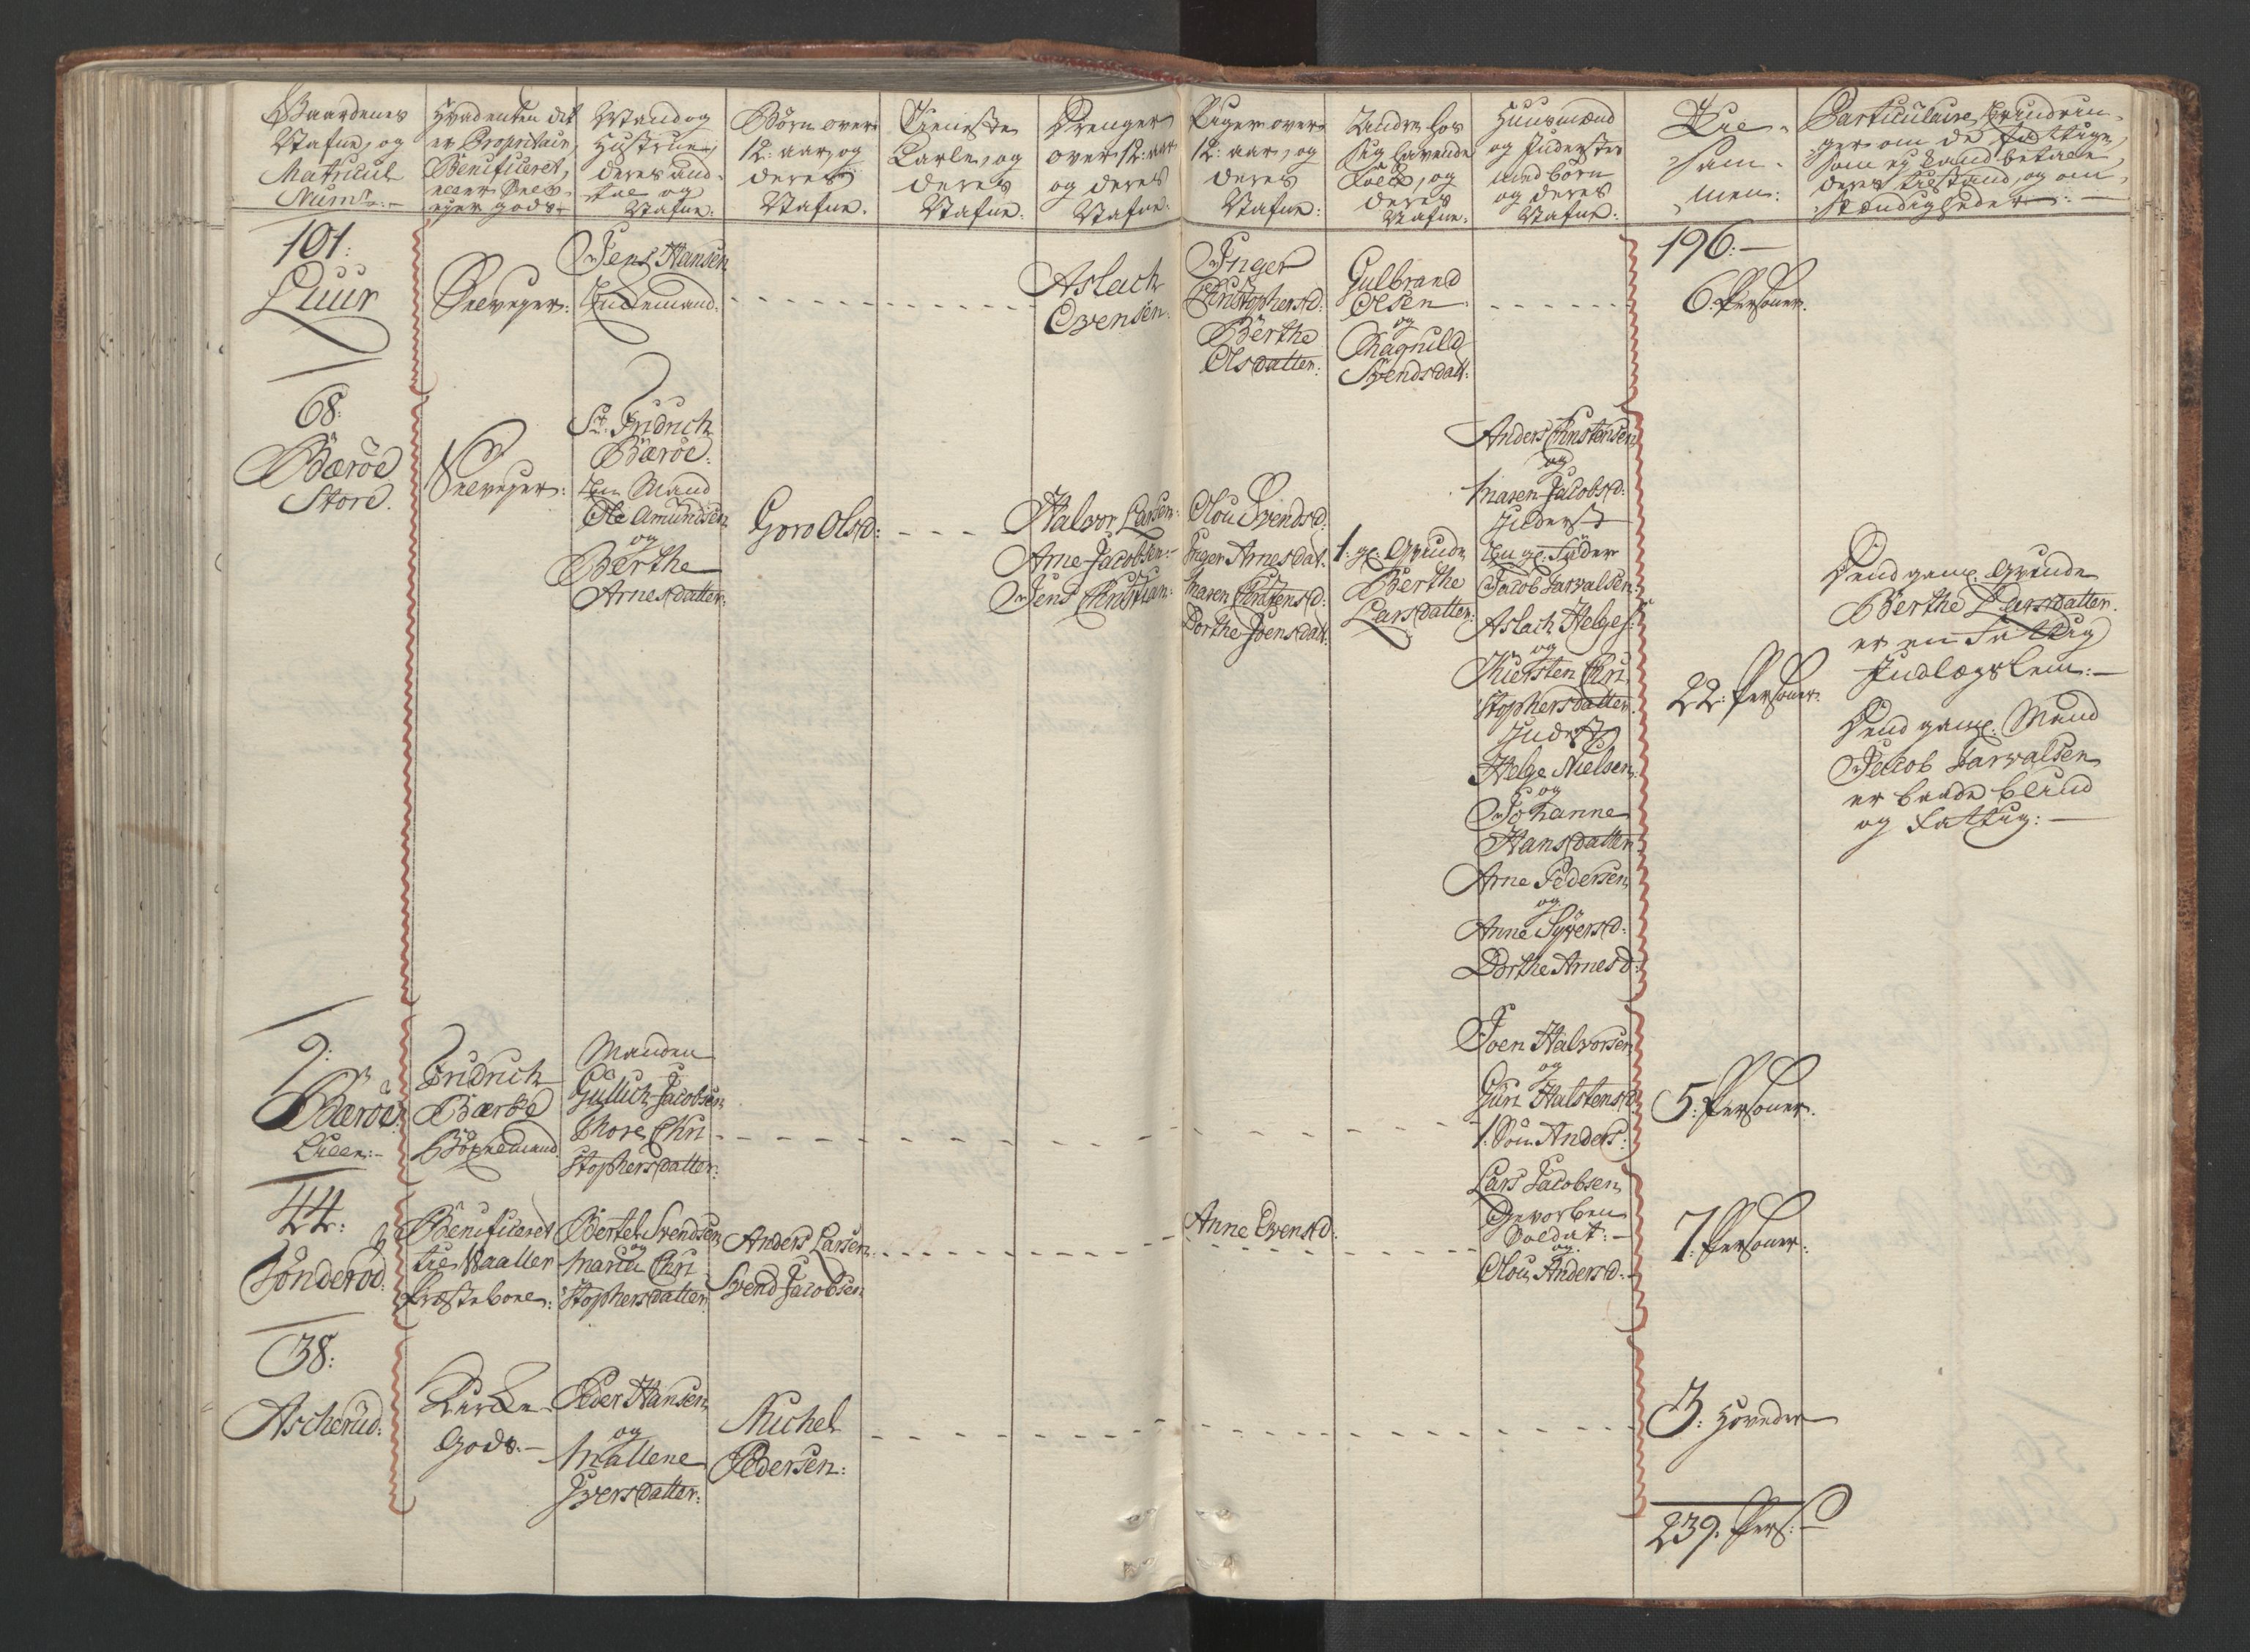 Gaardenes
Nafne, og
Matricul
Num:
Hvadenten det
er Proprietair,
Benificeret,
eller Selv-
eyer gods
Mand og
Hustrue,
deres and-
tal og
Nafne:
Börn over
12: aar, og
deres
Nafne.
Tieneste
Karle, og
deres
Nafne:
Drenger
over 12: aar
og deres
Nafne:
Piger over
12: aar, og
deres
Nafne:
Andre hos
sig havende
Folck, og
deres
Nafne:
Huusmænd
og Inderster
med börn
og deres
Nafne:
Til-
sam-
men:
Particulaire Erindrin-
ger om de fattige,
som ey kand betale,
deres tilstand, og om-
stændigheder:
101:
Luur
Selveyer:
Jens Hansen
Enckemand:
Aslach
Evensen:
Inger
Christophersd:
Berthe
Olsdatter:
Gulbrand
Olsen
og
Ragnild
Svendsdatt:
196:
6: Personer.
68:
Bæröe
Store.
Selveyer:
Sr: Fridrich
Bæröe:
En Mand
Ole Amundsen
og
Berthe
Arnesdatter:
Goro Olsd:
Halvor Larsen:
Arne Jacobsen:
Jens Christian:
Olou Svendsd:
Inger Arnesdat:
Maren Christensd:
Dorthe Joensdatt:
1: gl: Qvinde
Berthe
Larsdatter:
Anders Christensen
og
Maren Jacobsd:
Inderst
En gl: Fader
Jacob Tarvalsen:
Aslach Helges:
og
Kiersten Chri
stophersdatter
Inderst
Helge Nielsen:
og
Johanne
Hansdatter
Arne Pedersen
og
Anne Syversd:
Dorthe Arnesd:
22: Personer.
Dend gaml: Qvinde
Berthe Larsdatter
er en Fattig
Indlægslem:
Dend gaml: Mand
Jacob Tarvalsen
er baade blind
og fattig:
9:
Bæröe
Lille:
Fridrich
Bæröe
Böxelmand
Manden
Gullich Jacobsen
Thore Chri
stophersdatter:
Joen Halvorsen
og
Guri Halstensd:
1. Sön Anders:
5: Personer.
44:
Sönderöd:
Benificeret
til Waaller
Præstebole:
Bertel Svendsen
og
Maria Chri
stophersdatter
Anders Larsen
Svend Jacobsen
Anne Evensd:
Lars Jacobsen
Gevorben
Soldat:
og
Olou Andersd:
7: Personer:
38:
Ascherud:
Kircke
Gods:
Peder Hansen
og
Mallene
Iversdatter:
Michel
Pedersen:
3: Hoveder
239. Pers: